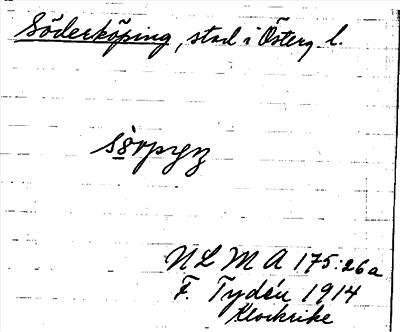 Söderköping, stad i Österg. l.
sörpyŋ
N L M A 175:26a
F. Tydén 1914
Klockrike